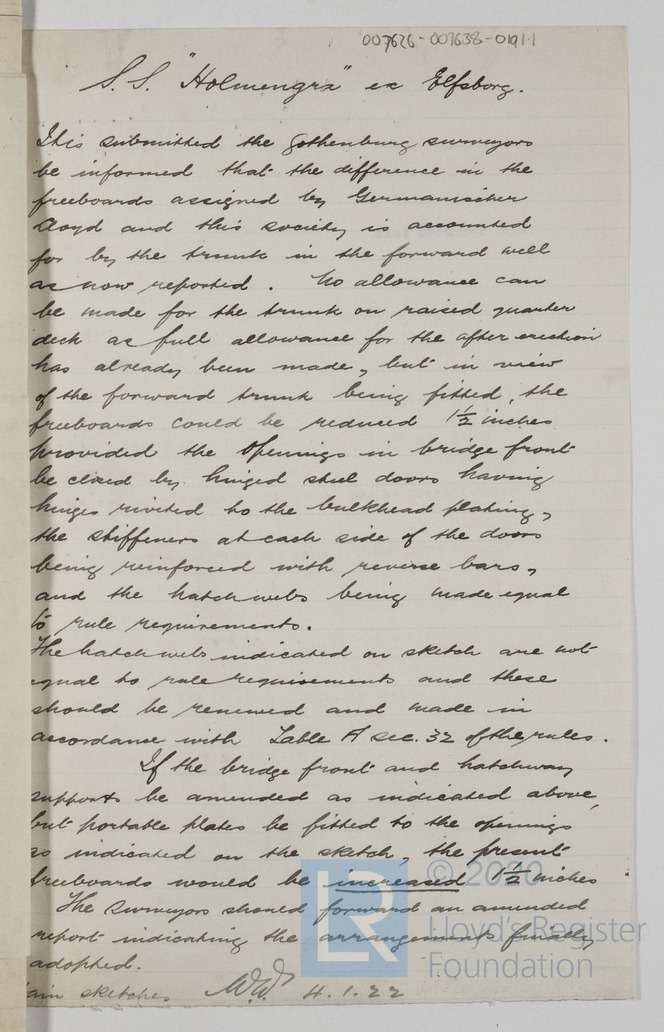 007626-007638-0191-1
S.S. "Holmengra" ex Elfsborg.
It is submitted the Gothenburg surveyors
be informed that the difference in the
freeboards assigned by Germanischer
Lloyd and this society is accounted
for by the trunk in the forward well
as now reported. No allowance can
be made for the trunk on raised quarter
deck as full allowance for the after erection
has already been made, but in view
of the forward trunk being fitted, the
freeboards could be reduced 1½ inches
provided the openings in bridge front
be closed by hinged steel doors having
hinges riveted to the bulkhead plating,
the stiffeners at each side of the doors
being reinforced with reverse bars,
and the hatch webs being made equal
to rule requirements.
The hatch webs indicated on sketch are not
equal to rule requirements and these
should be renewed and made in
accordance with Table A sec. 32 of the rules.
If the bridge front and hatchway
supports be amended as indicated above,
but portable plates be fitted to the openings
as indicated on the sketch, the present
freeboards would be increased 1½ inches
The surveyors should forward an amended
report indicating the arrangements finally
adopted.
sketches W.W. 4.1.22
© 2020
LR
Lloyd's Register
Foundation